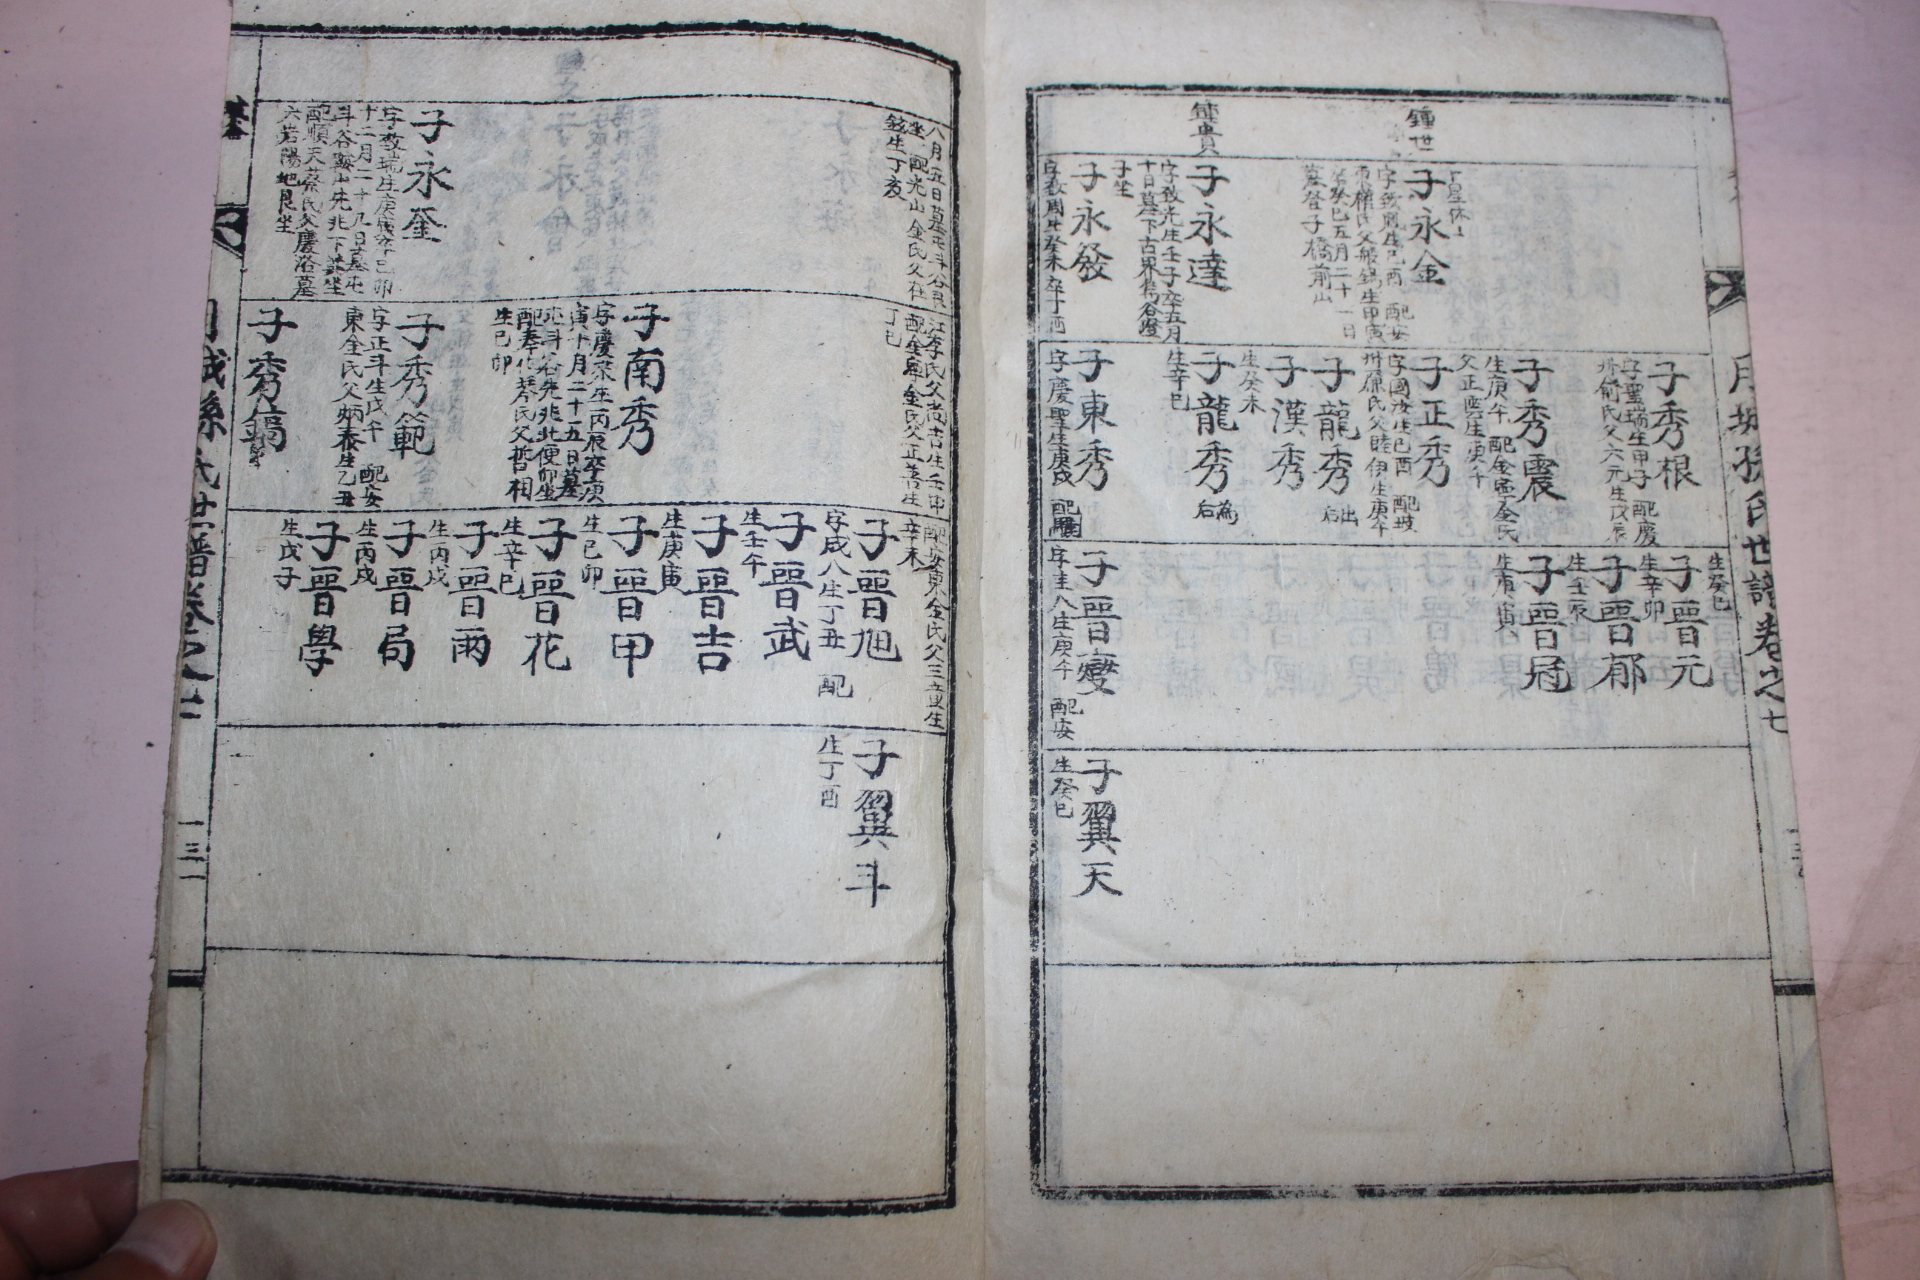 月城孫氏世譜卷之七
鍾世
子永金
字致見生己酉 配安
東權氏父般錫生甲寅
卒癸巳五月二十一日
墓登子橋前山
鍾貴
子永達
字致光生壬子卒五月
十日墓下古界鳥谷嶝
子坐
子永發
字致周生癸未卒丁酉
子秀根
字聖瑞生甲子 配慶
州俞氏父六元生戊辰
子秀震
生庚午 配金寧金氏
父正熙生庚午
子正秀
字國汝生己酉 配坡
子龍秀 出后
子漢秀
生癸未
子龍秀 為后
生辛巳
子東秀
字慶聖生庚戌 配
生癸巳
子晋元
生辛卯
子晋郁
生壬辰
子晋冠
生甫寅
子晋變
字圭八生庚午 配安
子翼天
生癸巳
八月五日墓屯斗谷艮
坐 配光山金氏父在
鉉生丁亥
子永奎
字致瑞生庚寅卒己卯
十二月二十九日墓屯
斗谷案山先兆下艮坐
配順天蔡氏父慶浴墓
六岩陽地艮坐
江李氏父尚吉生壬申
配金寧金氏父正善生
丁巳
子南秀
字慶來生丙辰卒庚
寅十月二十五日墓
屯斗谷先兆北便卯坐
配奉化琴氏父哲相
生己卯
子秀範
字正斗生戊午 配安
東金氏父炳泰生乙丑
子秀鎬
配安東金氏父三立生
辛未
子晋旭
字成八生丁丑 配
子晋武
生壬午
子晋吉
生庚寅
子晋甲
生己卯
子晋花
生辛巳
子晋雨
生丙戌
子晋局
生丙戌
子晋學
生戊子
子翼斗
生丁酉
月城孫氏世譜卷之七